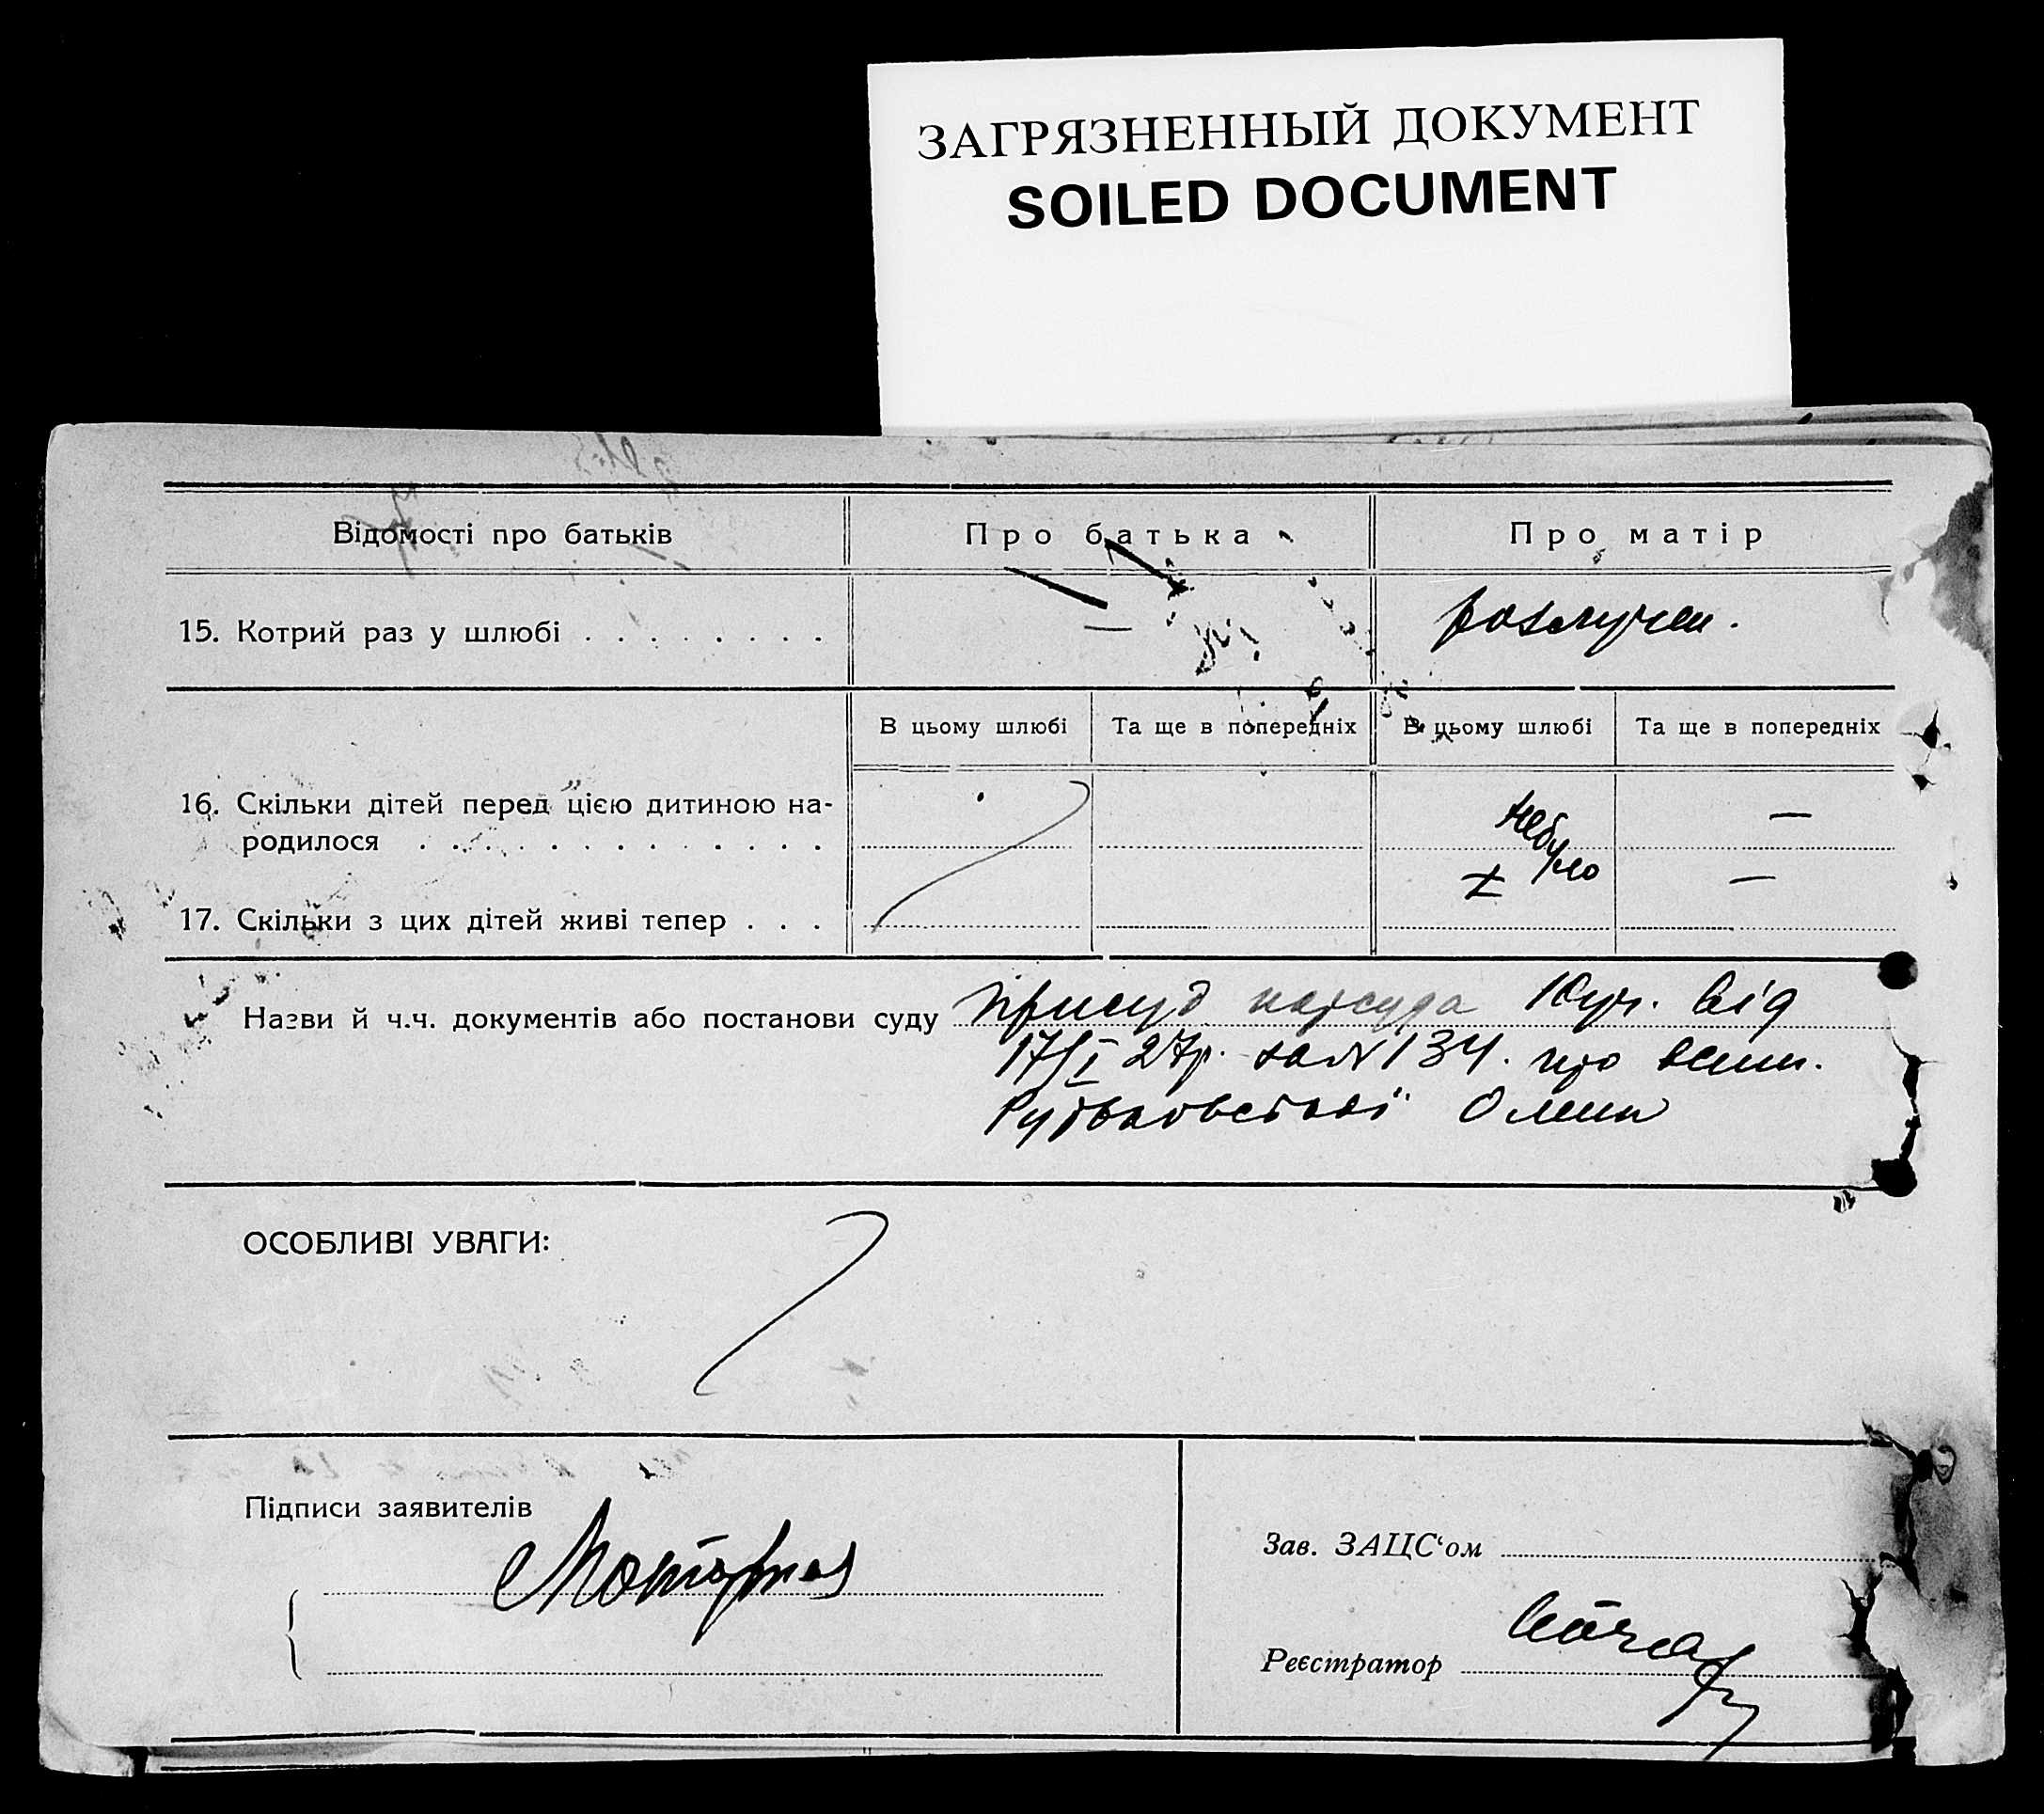 ЗАГРЯЗНЕННЫЙ ДОКУМЕНТ
SOILED DOCUMENT
Відомості про батьків
Про батька
Про матір
15. Котрий раз у шлюбі . . . . . . . .
—
розлучен.
В цьому шлюбі
Та ще в попередніх
В цьому шлюбі
Та ще в попередніх
16. Скільки дітей перед цією дитиною на-
родилося . . . . . . . . . . . . .
небуло
—
17. Скільки з цих дітей живі тепер . . .
—
Назви й ч.ч. документів або постанови суду присуд нарсуда від
17/I 27р. за № 134. про
Олени
ОСОБЛИВІ УВАГИ:
Підписи заявителів
Зав. ЗАЦС‘ом
Реєстратор